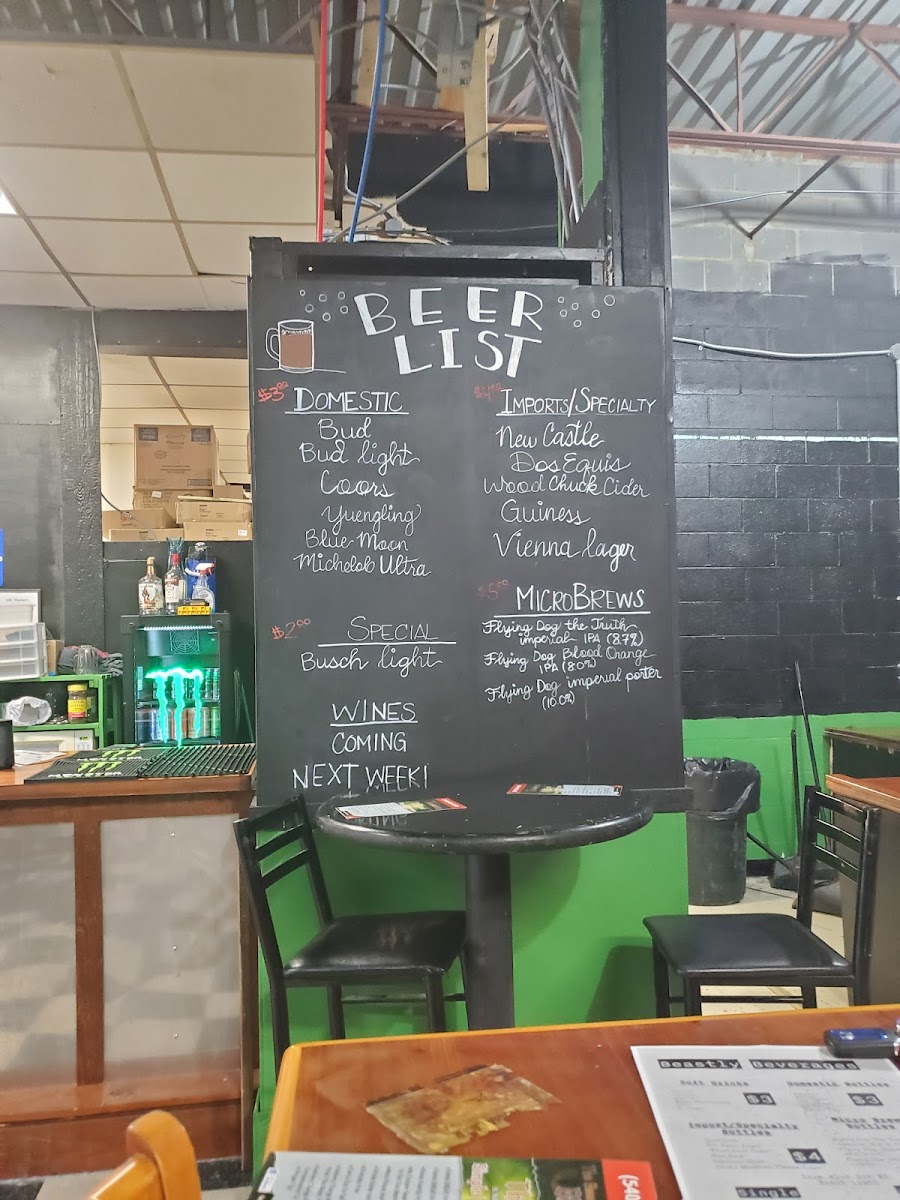 BEER
LIST
$3.00 DOMESTIC
Bud
Bud light
Coors
Yuengling
Blue Moon
Michelob Ultra
$2.00 SPECIAL
Busch light
WINES
COMING
NEXT WEEK!
$4.00 IMPORTS/SPECIALTY
New Castle
Dos Equis
Wood Chuck Cider
Guiness
Vienna lager
$5.00 MICROBREWS
Flying Dog the Truth
imperial IPA (8.7%)
Flying Dog Blood Orange
IPA (8.0%)
Flying Dog imperial porter
(10.0%)
Beastly Beverages
Soft Drinks
$3
Domestic Bottles
$3
Import/Specialty
Bottles
$4
Micro Brew
Bottles
Single
(540)